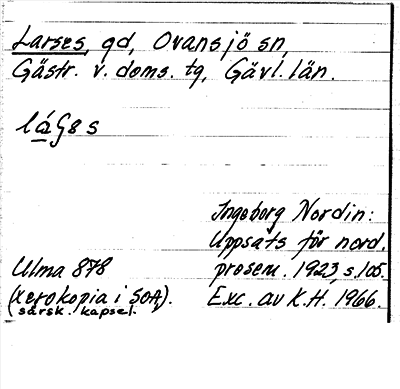 Larses, gd, Ovansjö sn,
Gästr. v. doms. tg, Gävl. län.
láGes
Ingeborg Nordin:
Uppsats för nord.
prosem. 1923, s. 105.
Exc. av K.H. 1966.
Ulma 878
(xerokopia i SOA).
särsk. kapsel.